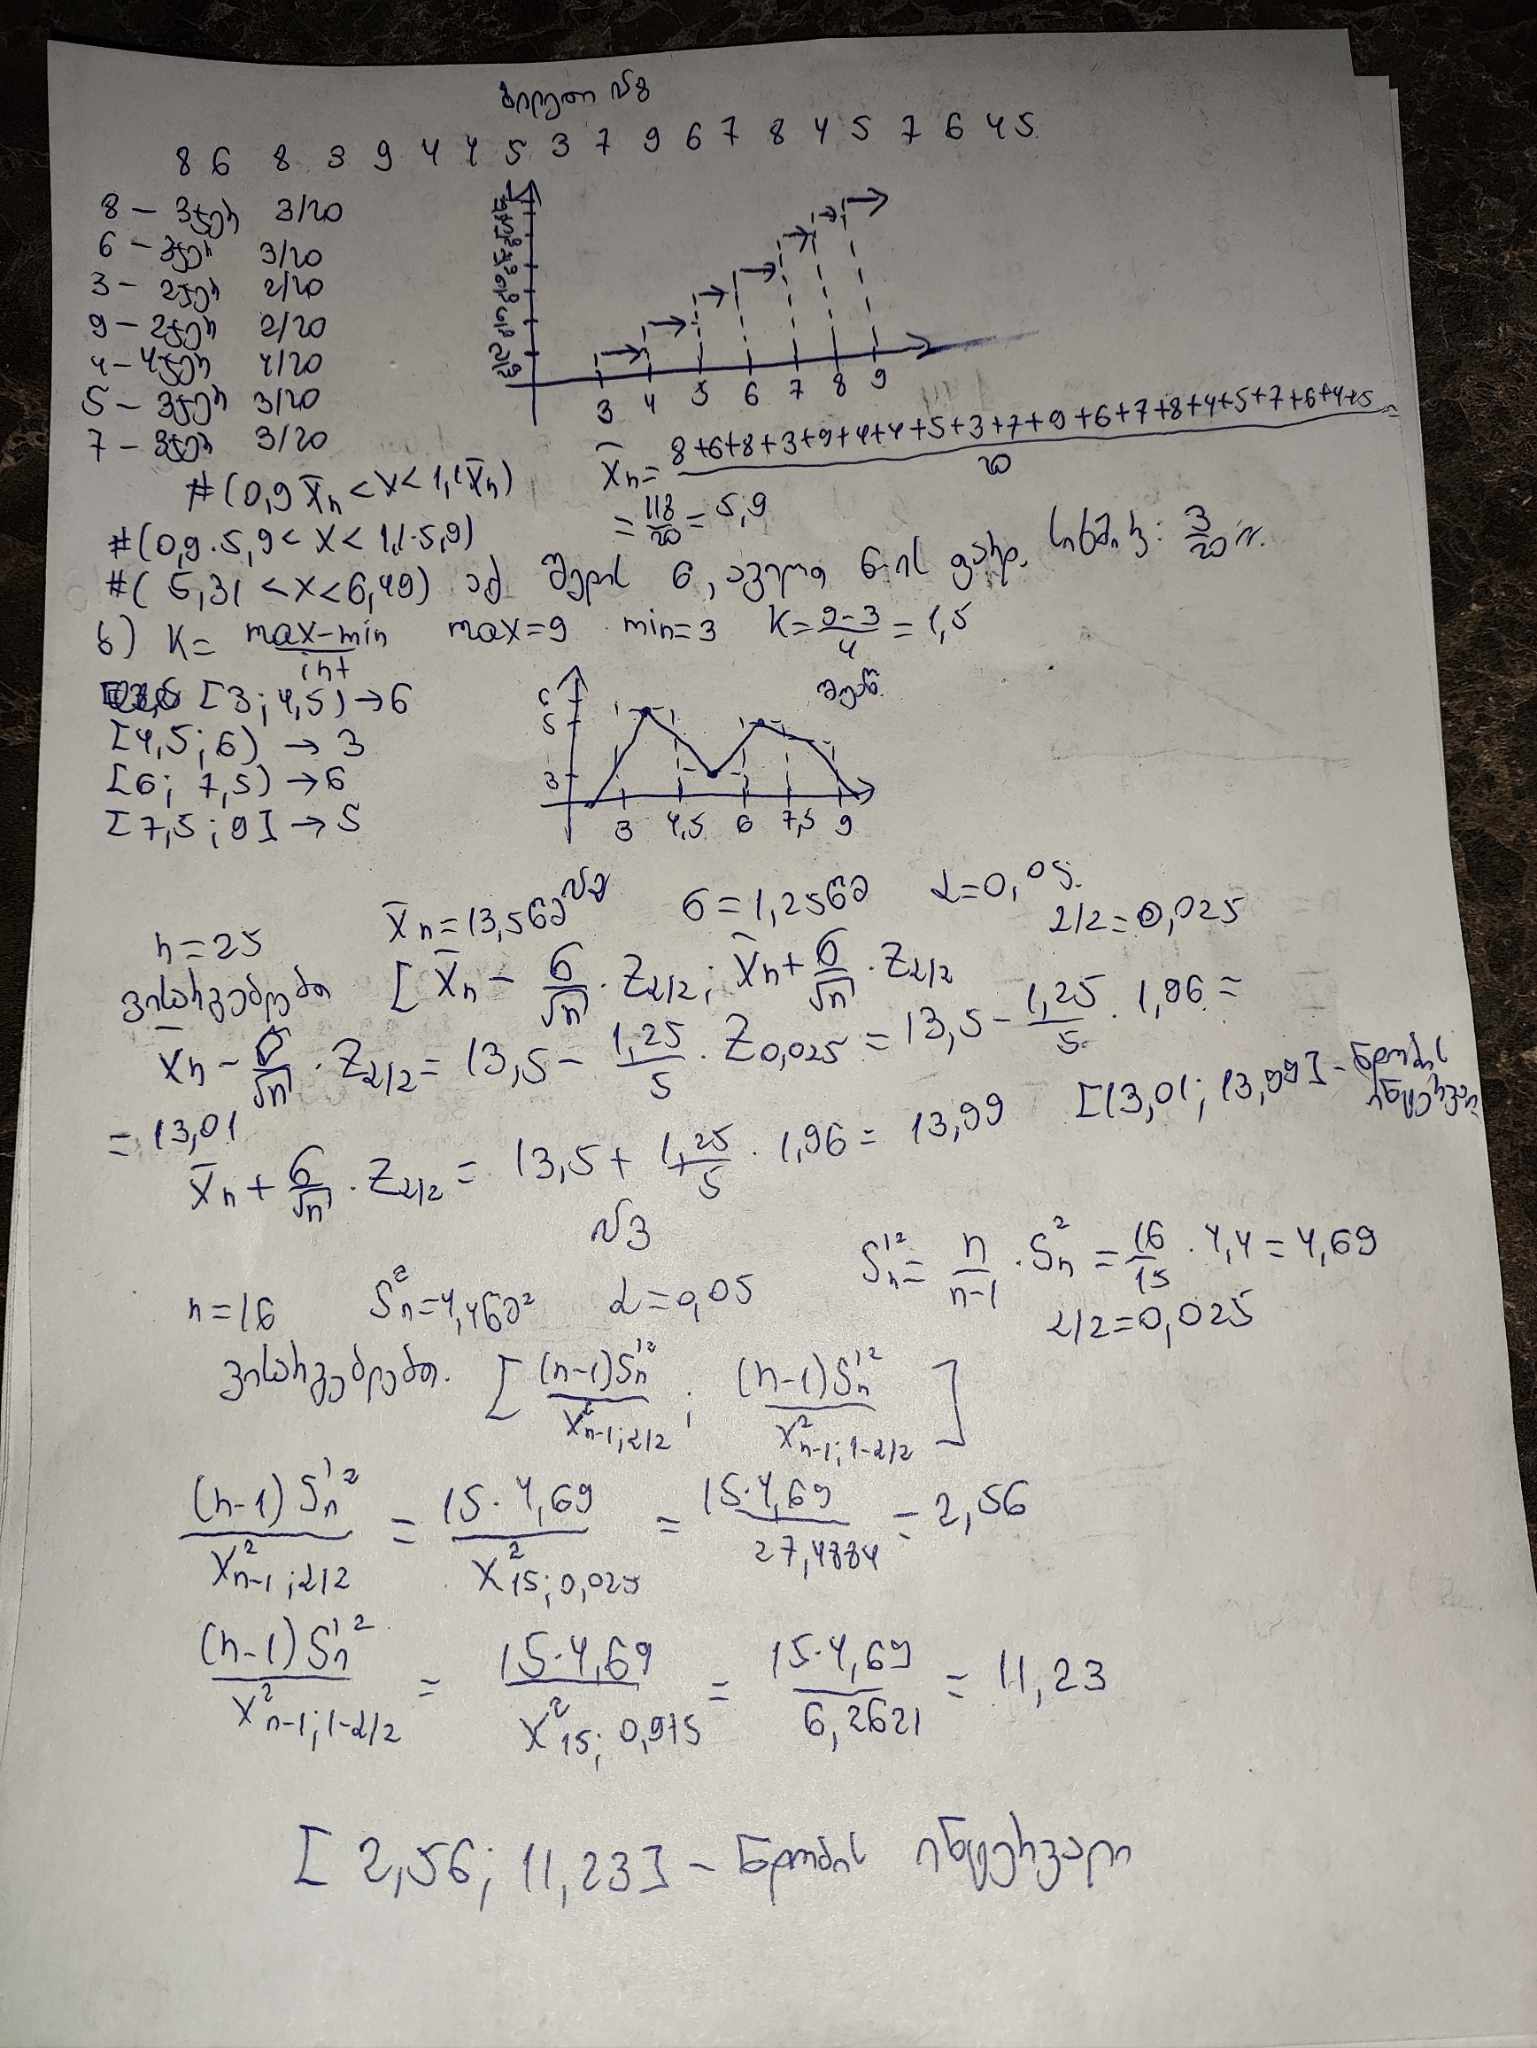 ბილეთი №8
8 6 8 3 9 4 4 5 3 7 9 6 7 8 4 5 7 6 4 5
8 – 3ჯერ 3/20
6 – 3ჯერ 3/20
3 – 2ჯერ 2/20
9 – 2ჯერ 2/20
4 – 4ჯერ 4/20
5 – 3ჯერ 3/20
7 – 3ჯერ 3/20
3 4 5 6 7 8 9
X̄n = 8+6+8+3+9+4+4+5+3+7+9+6+7+8+4+5+7+6+4+5 / 20 =
= 118/20 = 5,9
#(0,9 X̄n < X < 1,1 X̄n)
#(0,9·5,9 < X < 1,1·5,9)
#(5,31 < X < 6,49) აქ შედის 6, ავიღოთ 6-ის ფარდ. სიხშ. 3/20
б) K = max–min / int max=9 min=3 K = 9-3/4 = 1,5
[3; 4,5) → 6
[4,5; 6) → 3
[6; 7,5) → 6
[7,5; 9] → 5
6
5
3
3 4,5 6 7,5 9
№2
n=25 X̄n=13,5სმ б=1,25სმ α=0,05
α/2=0,025
ვისარგებლებთ [X̄n – б/√n · Zα/2; X̄n + б/√n · Zα/2
X̄n – б/√n · Zα/2 = 13,5 – 1,25/5 · Z0,025 = 13,5 – 1,25/5 · 1,96 =
= 13,01
X̄n + б/√n · Zα/2 = 13,5 + 1,25/5 · 1,96 = 13,99 [13,01; 13,99] – ნდობის ინტერვალი
№3
n=16 Sn²=4,4სმ² α=0,05 Sn'² = n/n-1 · Sn² = 16/15 · 4,4 = 4,69
α/2=0,025
ვისარგებლებთ. [(n-1)Sn'² / X²n-1;α/2 ; (n-1)Sn'² / X²n-1;1-α/2]
(n-1)Sn'² / X²n-1;α/2 = 15·4,69 / X²15;0,025 = 15·4,69 / 27,4884 = 2,56
(n-1)Sn'² / X²n-1;1-α/2 = 15·4,69 / X²15;0,975 = 15·4,69 / 6,2621 = 11,23
[2,56; 11,23] – ნდობის ინტერვალი